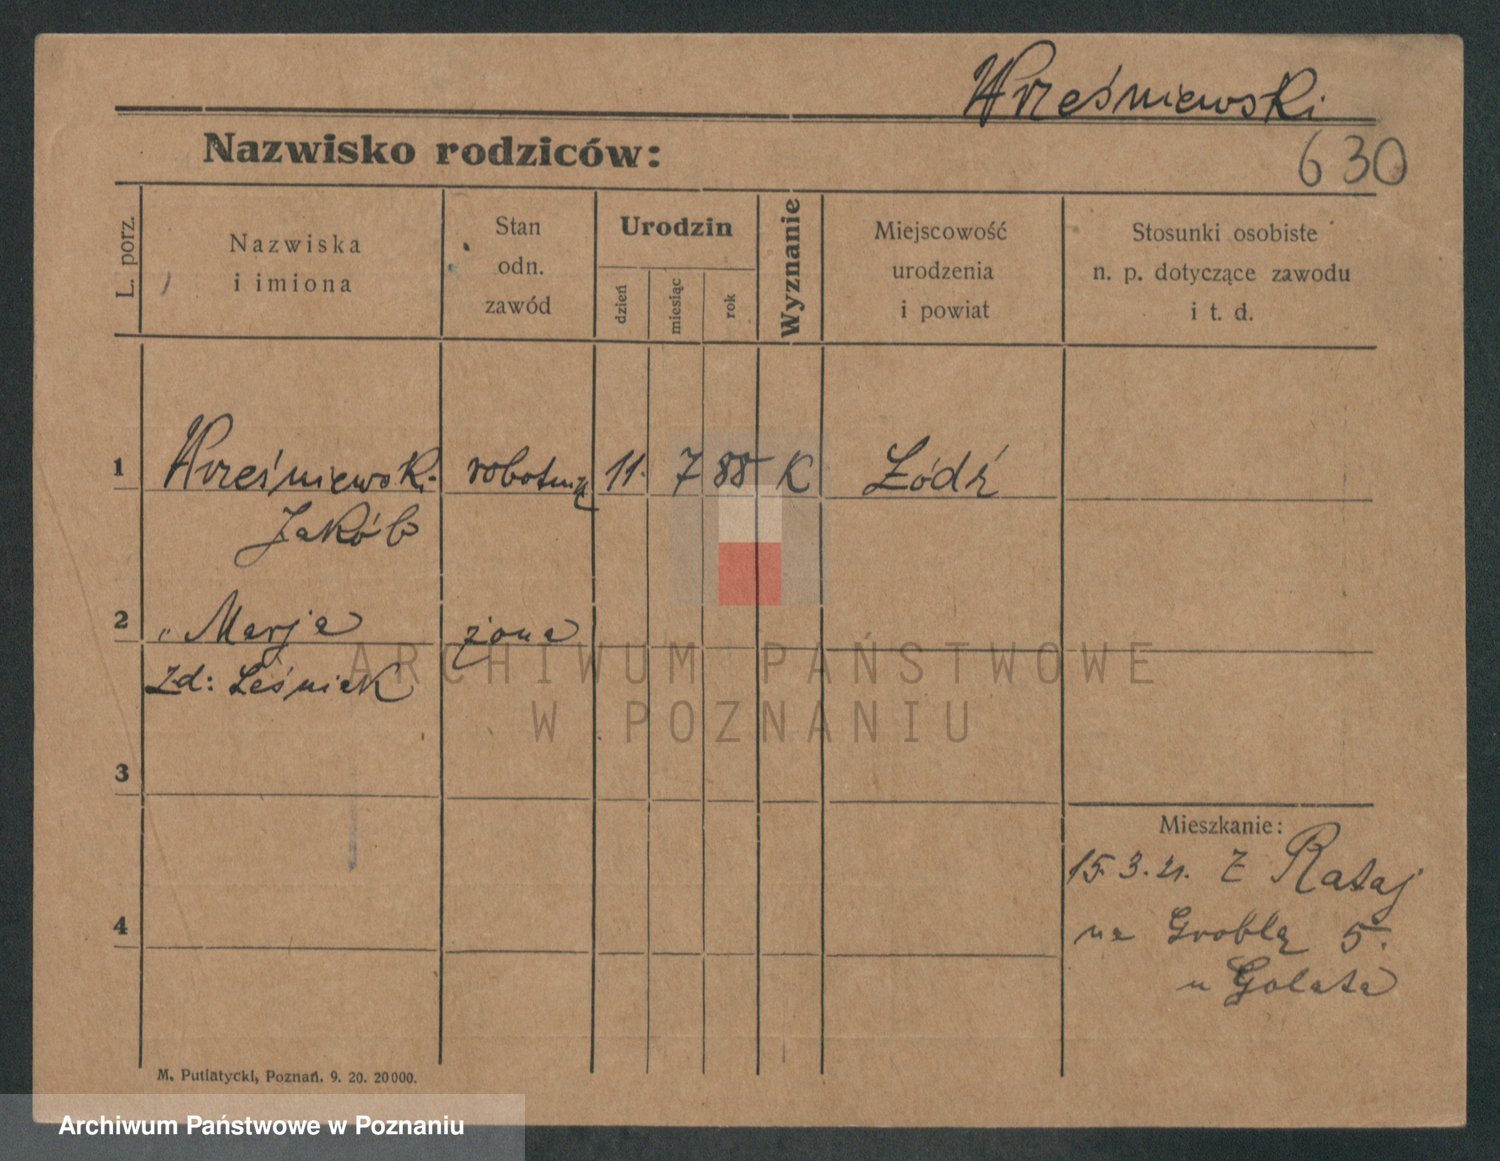 Wreśniewski
630
Nazwisko rodziców:
L. porz.
Nazwiska
i imiona
Stan
odn.
zawód
Urodzin
dzień
miesiąc
rok
Wyznanie
Miejscowość
urodzenia
i powiat
Stosunki osobiste
n. p. dotyczące zawodu
i t. d.
1 Wreśniewski robotnik 11. 7 88 K Łódź
Jakób
2 " Marja żona
zd: Leśniak
ARCHIWUM PAŃSTWOWE
W POZNANIU
3
Mieszkanie:
15.3.21. z Rataj
4
na Groblą 5.
u Golata
M. Putiatycki, Poznań. 9. 20. 20000.
Archiwum Państwowe w Poznaniu